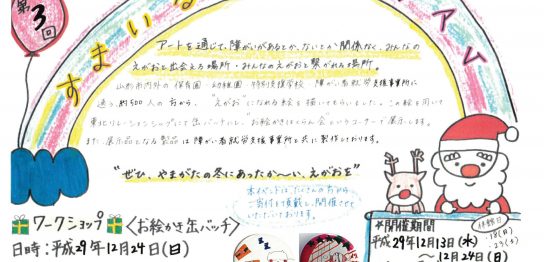 第3回
すまいる
アム
アートを通じて、障がいがあるとか、ないとか関係なく、みんなの
えがおと出会える場所・みんなのえがおと繋がれる場所。
山形市内外の保育園 幼稚園 特別支援学校 障がい者就労支援事業所に
通う、約500人の方から、"えがお"になれる絵を描いてもらいました。この絵を用いて
また展示品となる製品は障がい者就労支援事業所と共に製作しております。
"ぜひ、やまがたの冬にあったか〜い、えがおを"
本イベントは、たくさんの方から
ご寄付を頂戴し、開催させて
いただいております。
ワークショップ
〈お絵かき缶バッチ〉
日時:平成29年12月24日(日)
*開催期間
平成29年12月13日(水)
〜12月24日(日)
休館日